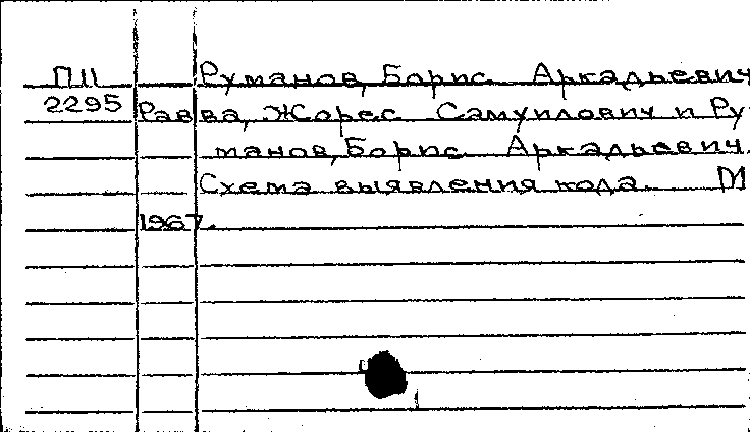 П11 Руманов, Борис Аркадьевич
2295 Равва, Жорес Самуилович и Ру
манов, Борис Аркадьевич.
Схема выявления кода. М
1967.